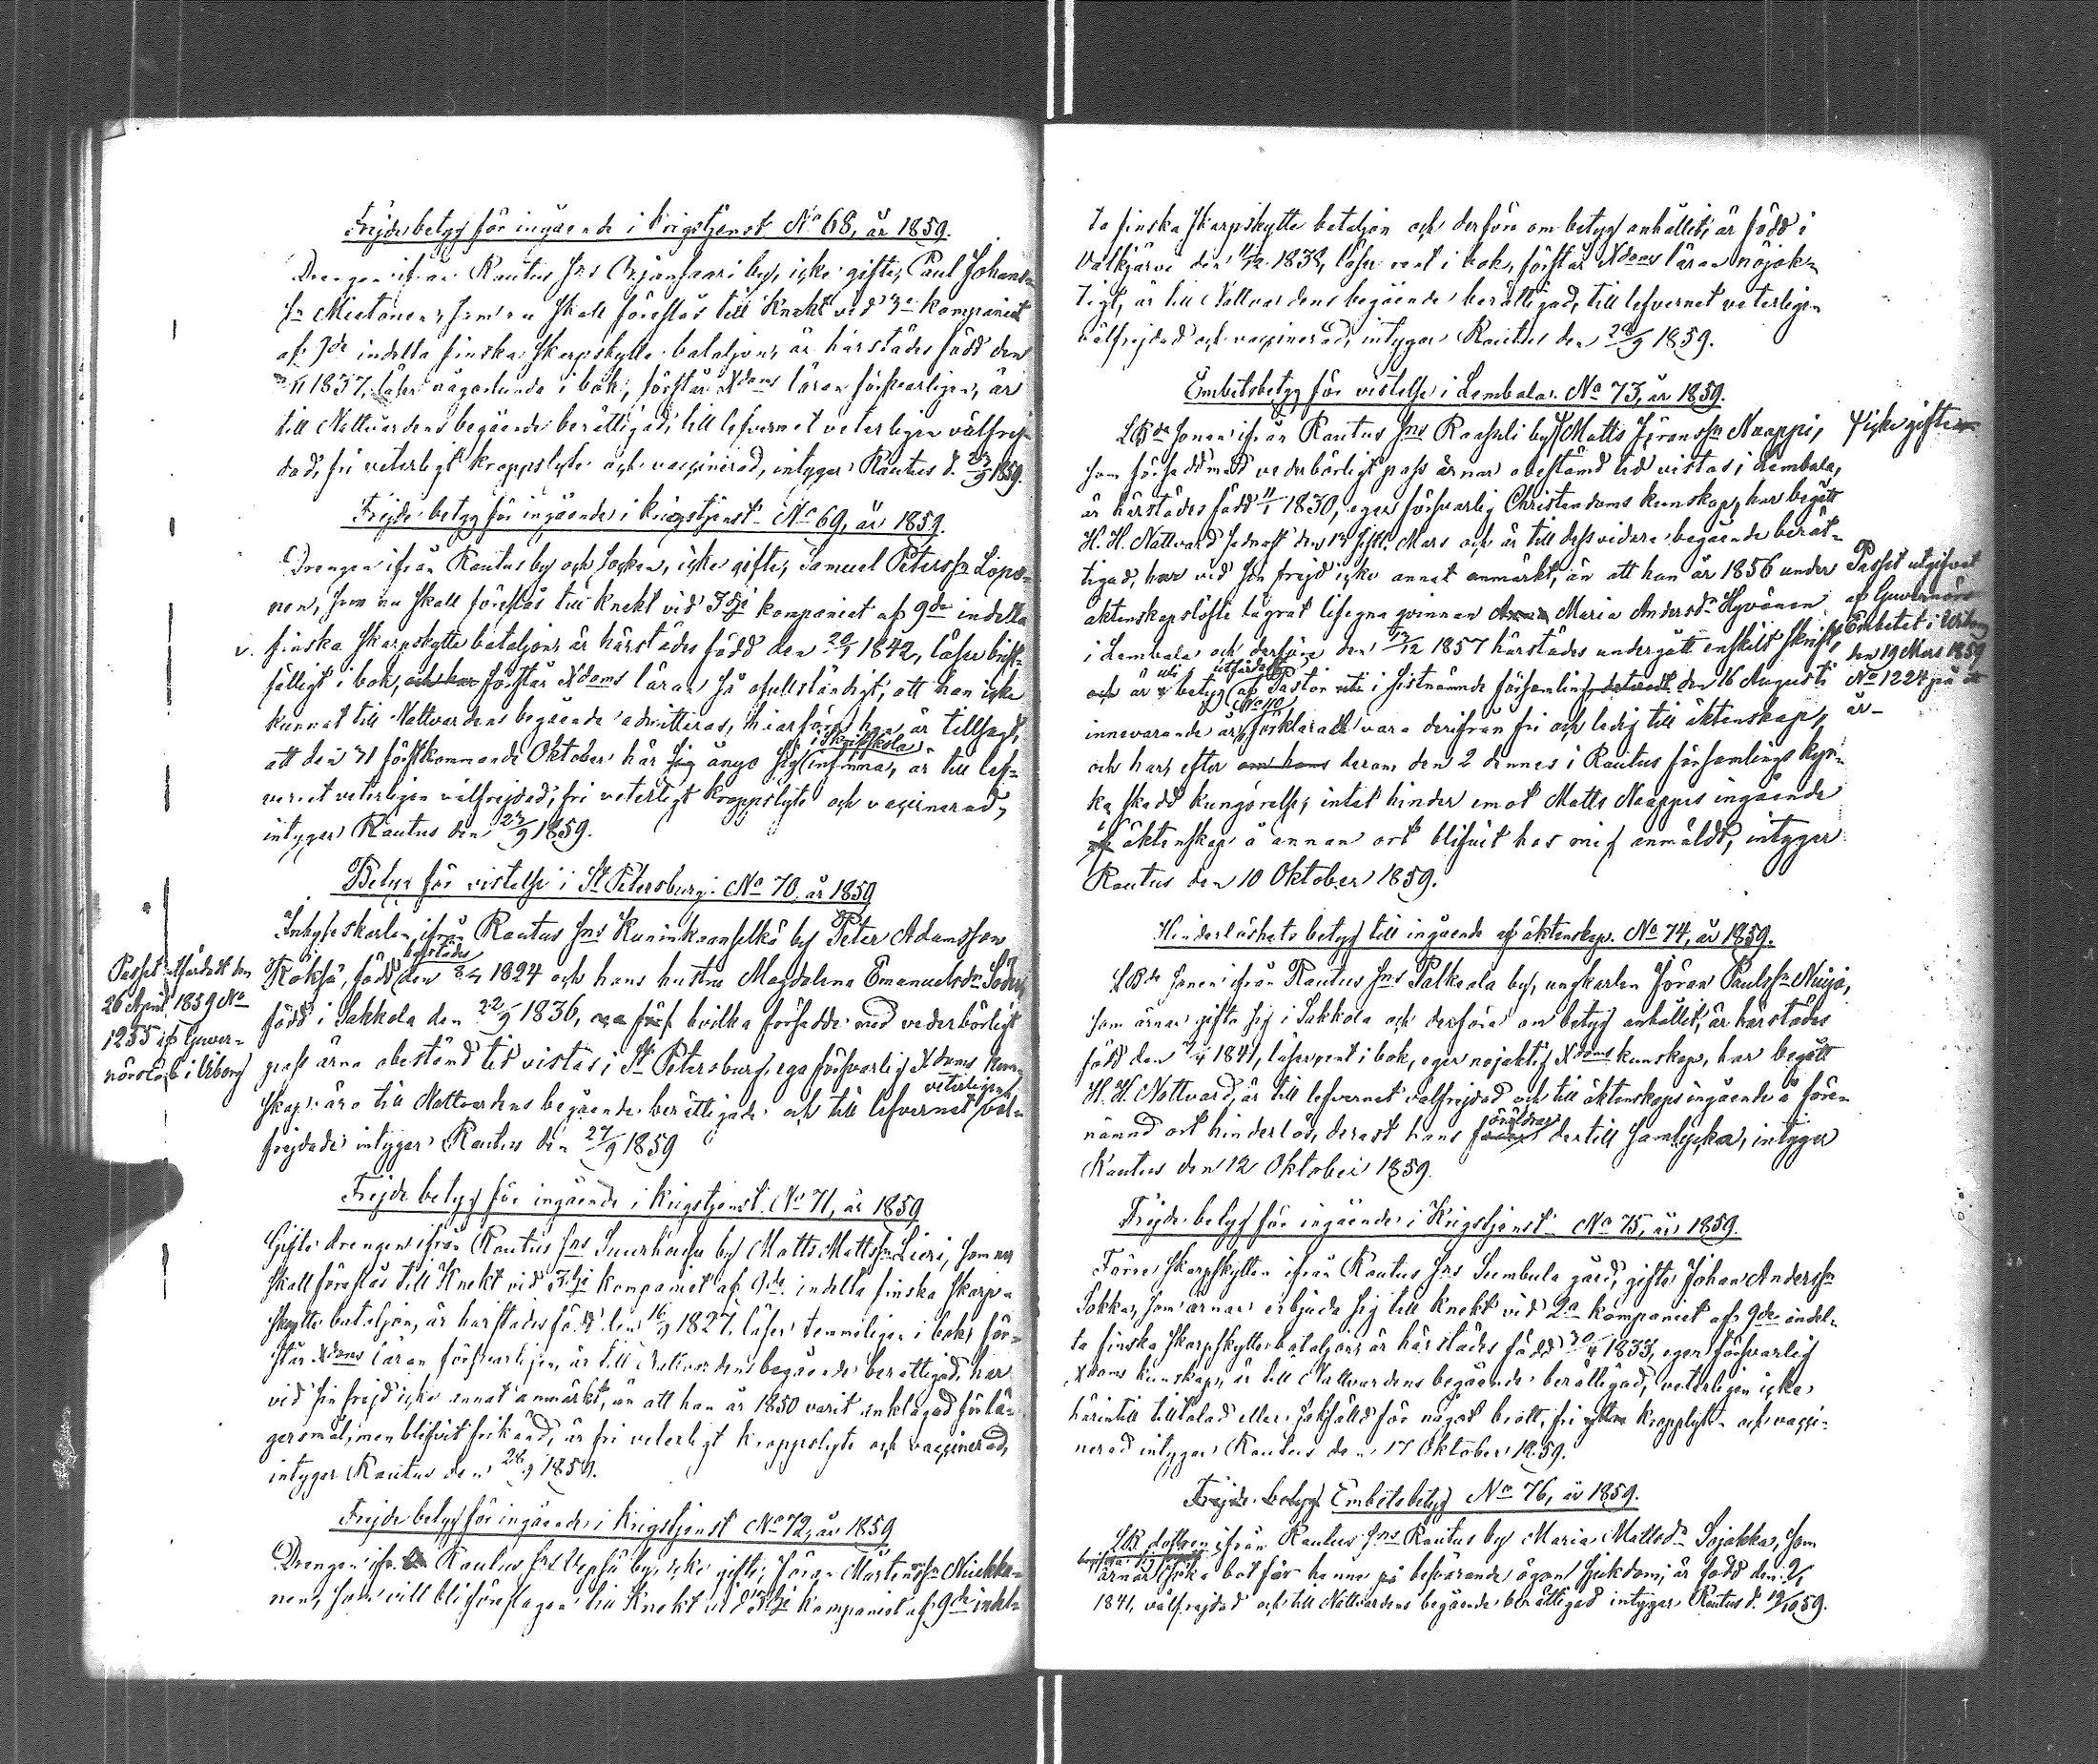 Frejdebetyg för ingående i krigstjenst No 68, år 1859.
Drengen ifrån Rautus sns Orjansaari by, icke gifte, Paul Johans-
sn Mietonen, som nu skall föreslås till Knekt vid 3e kompaniet
af 9de indelta finska skarpskytte bataljon, är härstädes född den
1837, läser någorlunda i bok, förstår Xdoms läran försvarligen, är
till Nattvardens begående berättigad, till lefvernet veterligen välfrej-
dad, fri veterligt kroppslyte och vaccinerad, intygar Rautus d. 23/9 1859.
Frejdebetyg för ingående i krigstjenst No 69, år 1859.
Drengen ifrån Rautus by och socken, icke gifte, Samuel Peterssn Lopo-
nen, som nu skall föreslås till knekt vid 3dje kompaniet af 9de indelta
v. finska skarpskytte bataljon, är härstädes född den 20/1 1842, läser brist-
fälligt i bok, och har förstår Xdoms läran så ofullständigt, att han icke
kunnat till Nattvardens begående admitteras, hvarföre han är tillsagd,
i Skriftskola
att den 31 förstkommande Oktober här sig ånyo sig infinna, är till lef-
vernet veterligen välfrejdad, fri veterligt kroppslyte och vaccinerad,
intygar Rautus den 27/9 1859.
Betyg för vistelse i St Petersburg. No 70, år 1859
Inhyseskarlen ifrån Rautus sns Kuninkaanselkä by Peter Adamsson
härstädes
Koksä, född den 1824 och hans hustru Magdalena Emanuelsdr Söder,
född i Sakkola den 22/9 1836, hvilka försedde med vederbörligt
pass ärna obestämd tid vistas i St Petersburg, ega försvarlig Xdoms kun-
veterligen
skap, äro till Nattvardens begående berättigade och till lefvernet väl-
frejdade intygar Rautus den 27/9 1859
Passet utfärdadt den
26 April 1859 No
1255 af Guver-
nörsemb i Viborg
Frejdebetyg för ingående i krigstjenst. No 71, år 1859
Gifte drengen ifrån Rautus sns Suurhousu by Matts Mattssn Lieri, som nu
skall föreslås till Knekt vid 3dje kompaniet af 9de indelta finska skarp-
skytte bataljon, är härstädes född den 16/9 1827, läser temmeligen i bok, för-
står Xdoms läran försvarligen, är till Nattvardens begående berättigad, har
vid sin frejd icke annat anmärkt, än att han år 1850 varit anklagad för lä-
gersmål, men blifvit frikänd, är fri veterligt kroppslyte och vaccinerad,
intygar Rautus den 28/9 1859.
Frejdebetyg för ingående i krigstjenst No 72, år 1859
Drengen ifr Rautus sns Vepsä by, icke gifte, Jöran Mårtenssn Mukka-
nen, som vill bli föreslagen till Knekt vid 3dje kompaniet af 9de indel-
ta finska skarpskytte bataljon och derföre om betyg anhållit, är född i
Valkjärvi den 11/12 1838, läser rent i bok, förstår Xdoms läran nöjak-
tigt, är till Nattvardens begående berättigad, till lefvernet veterligen
välfrejdad och vaccinerad, intygar Rautus den 29/9 1859.
Embetsbetyg för vistelse i Lembala. No 73, år 1859.
LBde sonen ifrån Rautus sns Raasuli by, Matts Jöranssn Naappi, icke gifte
som försedd med vederbörligt pass ärnar obestämd tid vistas i Lembala,
är härstädes född 11/1 1830, eger försvarlig Christendoms kunskap, har begått
H. H. Nattvard sednast den 13 sistl. Mars och är till dess vidare begående berät-
tigad, har vid sin frejd icke annat anmärkt, än att han år 1856 under
äktenskapslöfte lägrat lifegna qvinnan Maria Andersdr Hyvönen
i Lembala och derföre den 12/12 1857 härstädes undergått enskilt skrift,
utfärdadt
och är betyg af Pastor i sistnämnde församling den 16 Augusti
No 110
innevarande år, förklarad vara derifrån fri och ledig till äktenskap,
och har, efter om hans derom den 2 dennes i Rautus församlings kyr-
ka skedd kungörelse, intet hinder emot Matts Naappis ingående
i äktenskap å annan ort blifvit hos mig anmäldt, intygar
Rautus den 10 Oktober 1859.
Passet utgifvet
af Guvernörs
Embetet i Viborg
den 19 Mars 1859
No 1224 på ett
år
Hinderlöshets betyg till ingående af äktenskap. No 74, år 1859.
LBde sonen ifrån Rautus sns Palkeala by, ungkarlen Jöran Paulssn Nuija,
som ärnar gifta sig i Sakkola och derföre om betyg anhållit, är härstädes
född den 1841, läser rent i bok, eger nöjaktig Xdoms kunskap, har begått
H. H. Nattvard, är till lefvernet välfrejdad och till äktenskaps ingående å före-
föräldrar
nämnd ort hinderlös, derest hans dertill samtycka, intygar
Rautus den 12 Oktober 1859.
Frejdebetyg för ingående i Krigstjenst No 75, år 1859.
Förre Skarpskytten ifrån Rautus sns Sumbula gård, gifte Johan Anderssn
Sokka, som ärnar erbjuda sig till knekt vid 2a kompaniet af 9de indel-
ta finska skarpskytte bataljon, är härstädes född 30/4 1833, eger försvarlig
Xdoms kunskap, är till Nattvardens begående berättigad, veterligen icke
härintill tilltalad eller sakfälld för något brott, fri kroppslyte och vacci-
nerad intygar Rautus den 17 Oktober 1859.
Frejde betyg Embetsbetyg No 76, år 1859.
LB dottren ifrån Rautus sns Rautus by Maria Mattsdr Sojakka, som
ärnar söka bot för henne på besvärande ögon sjukdom, är född den 2/1
1841, välfrejdad och till Nattvardens begående berättigad intygar Rautus d. 19/10 59.